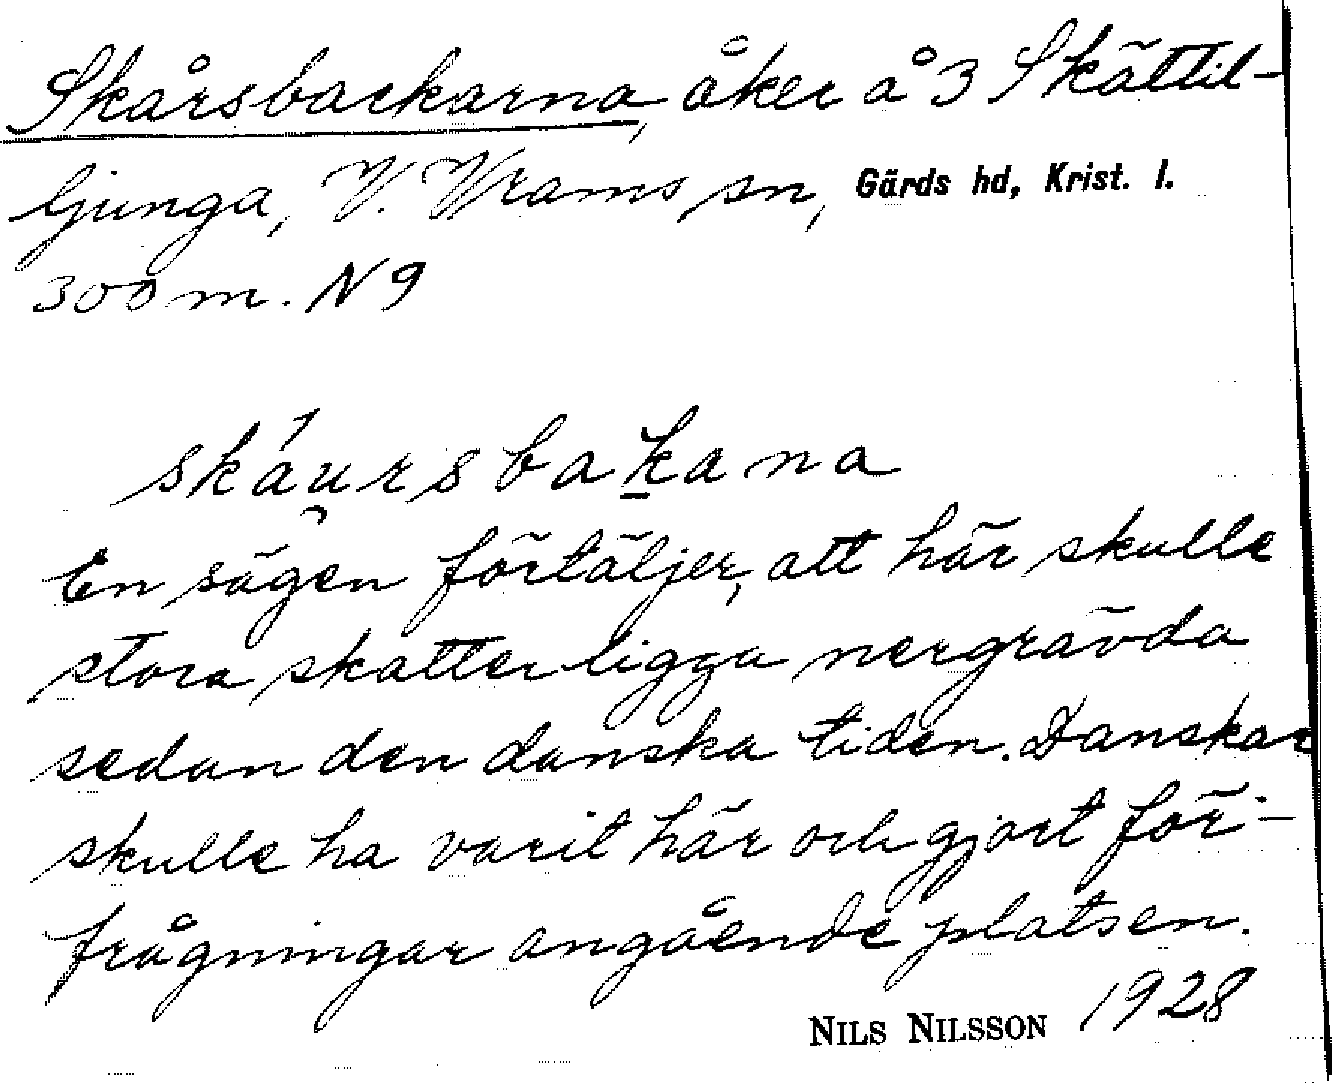 Skårsbackarna, åker å 3 Skättil-
ljunga, V. Vrams sn, Gärds hd, Krist. l.
300 m. N 9
skáu̯rsbaḵana
En sägen förtäljer, att här skulle
stora skatter ligga nergrävda
sedan den danska tiden. Danskar
skulle ha varit här och gjort för-
frågningar angående platsen.
NILS NILSSON 1928